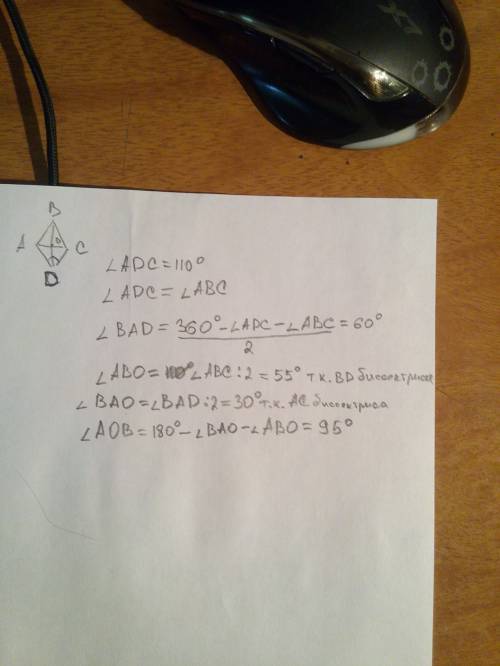 B
A O C
D
∠ADC=110°
∠ADC=∠ABC
∠BAD=360°-∠ADC-∠ABC=60°
2
∠ABO=∠ABC:2=55° т.к. BD биссектриса
∠BAO=∠BAD:2=30° т.к. AC биссектриса
∠AOB=180°-∠BAO-∠ABO=95°